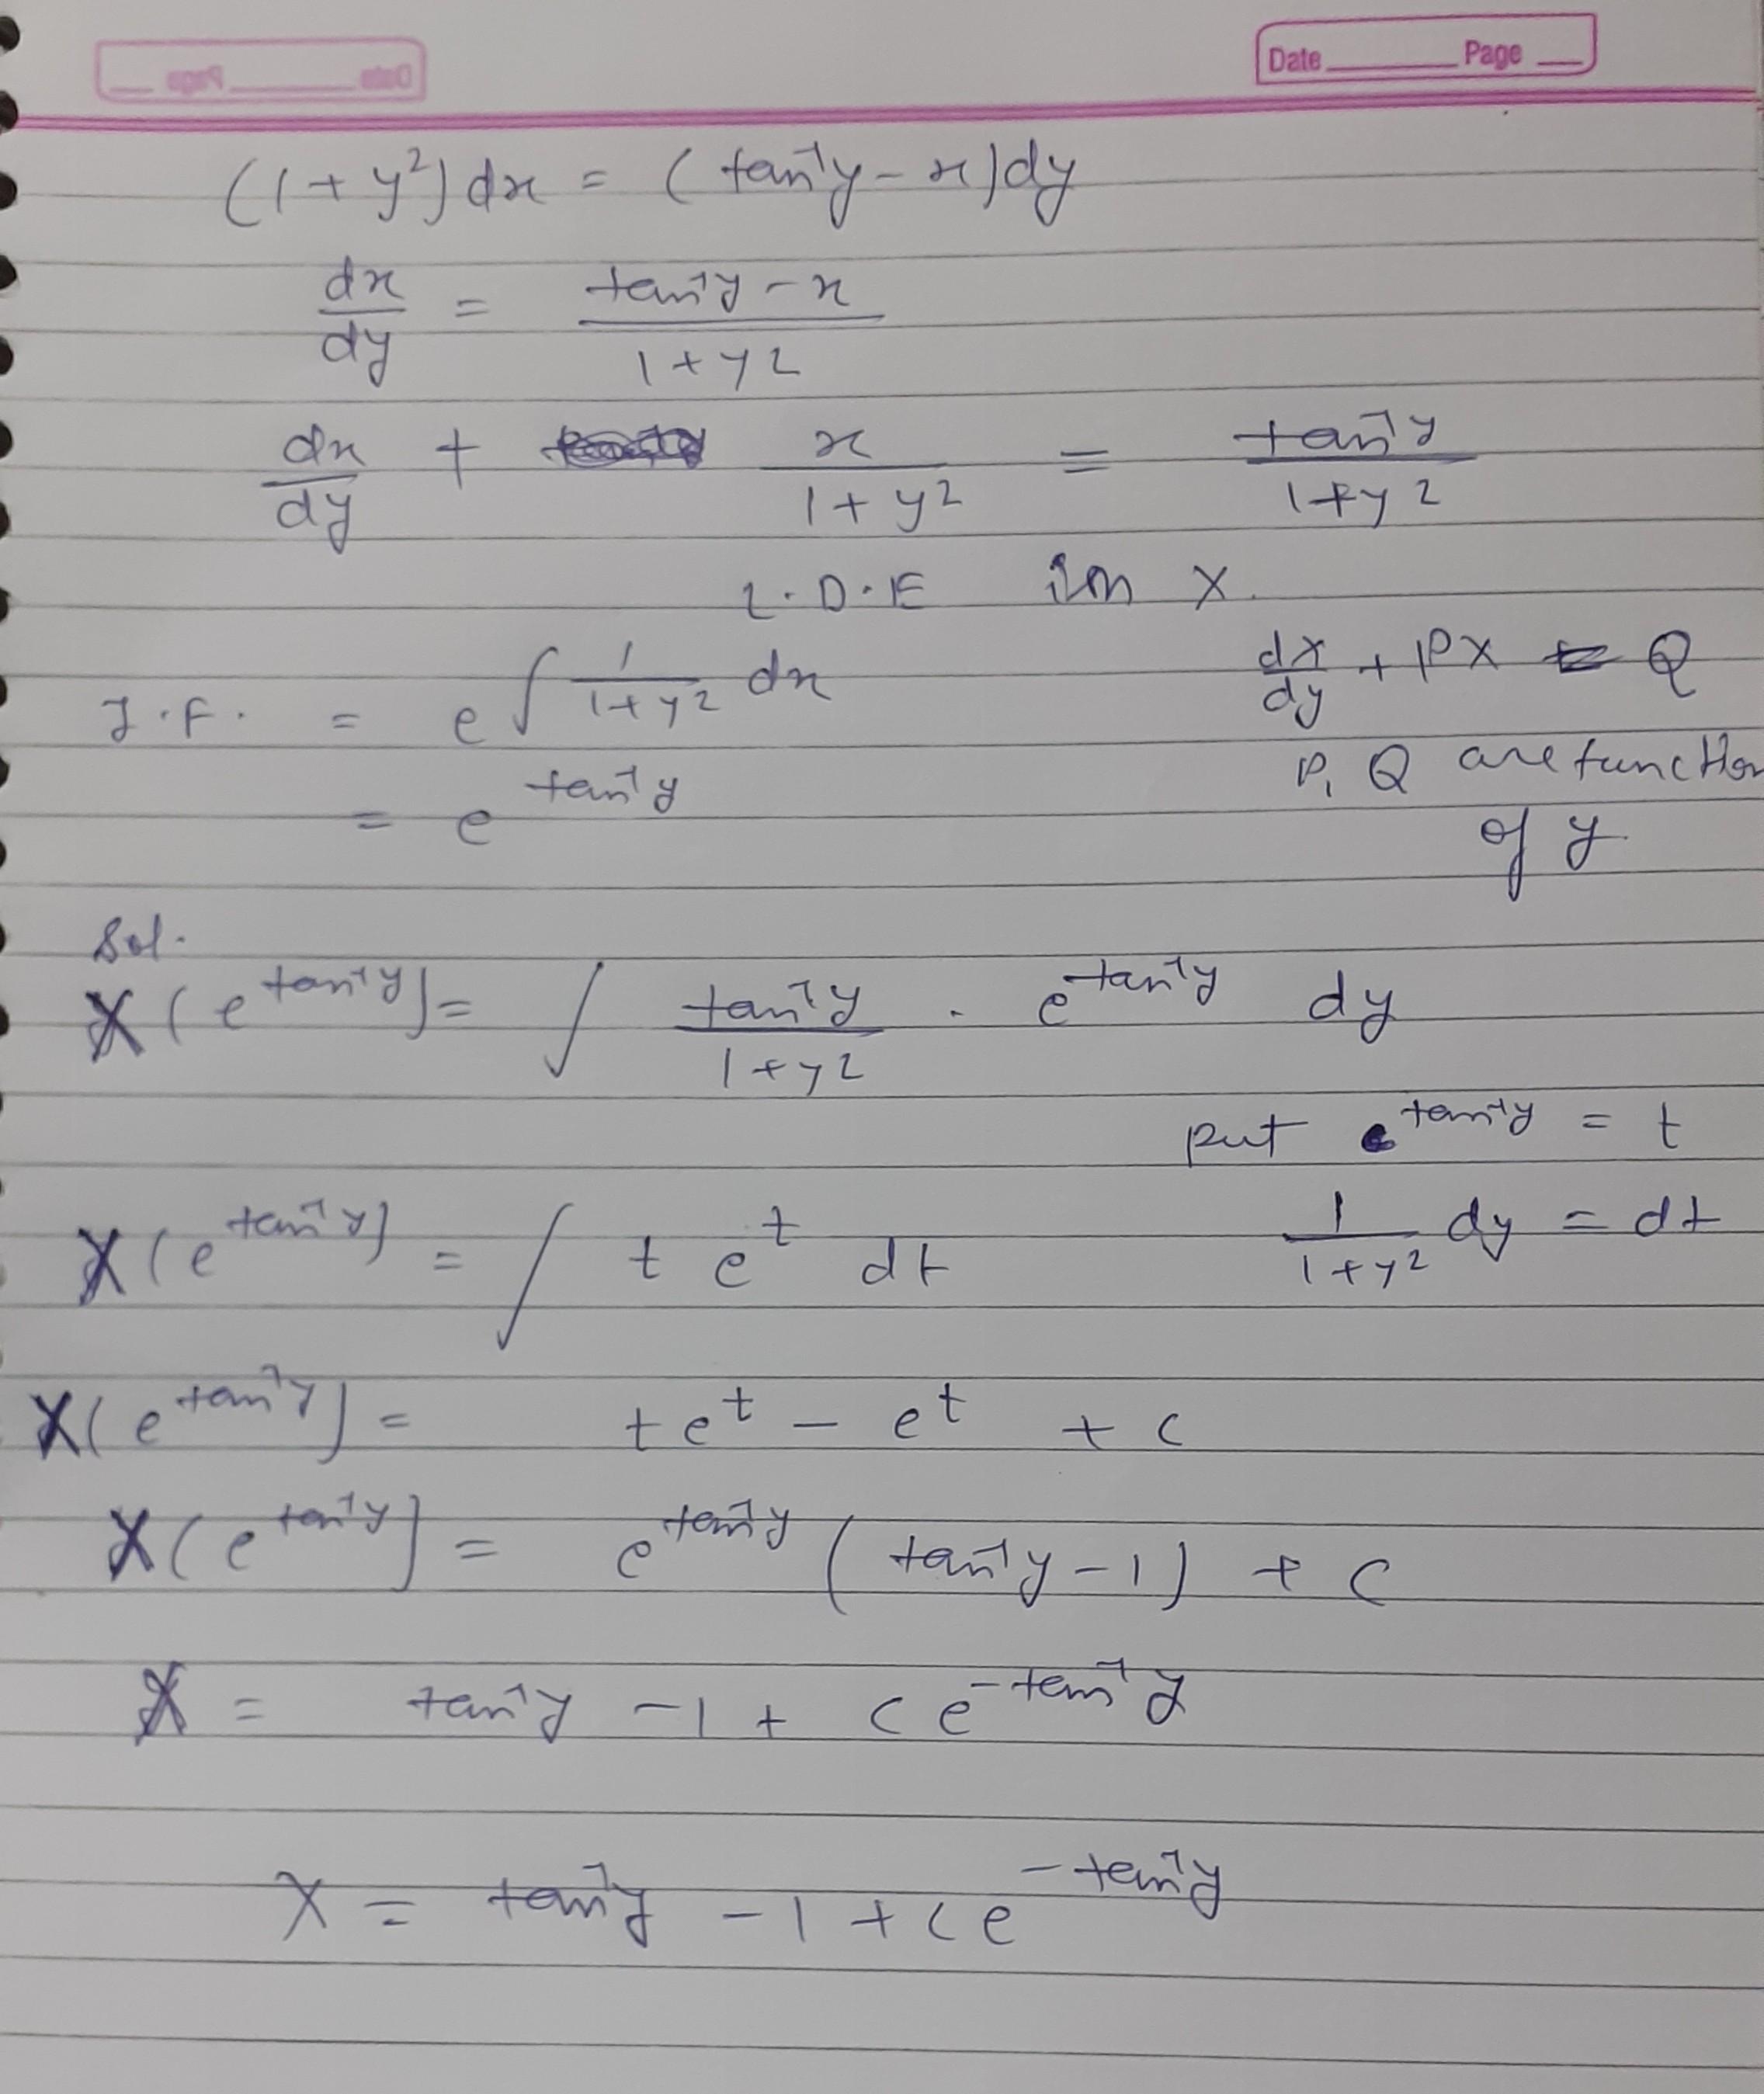 Date Page
(1 + y²) dx = (tan⁻¹y - x) dy
dx/dy = (tan⁻¹y - x)/(1 + y²)
dx/dy + x/(1 + y²) = tan⁻¹y/(1 + y²)
L.D.E in x.
I.F. = e^∫ 1/(1 + y²) dx
dx/dy + Px = Q
= e^(tan⁻¹y)
P, Q are function
of y
Sol.
x(e^(tan⁻¹y)) = ∫ tan⁻¹y/(1 + y²) . e^(tan⁻¹y) dy
put tan⁻¹y = t
x(e^(tan⁻¹y)) = ∫ t e^t dt
1/(1 + y²) dy = dt
x(e^(tan⁻¹y)) = te^t - e^t + c
x(e^(tan⁻¹y)) = e^(tan⁻¹y) (tan⁻¹y - 1) + c
x = tan⁻¹y - 1 + ce^(-tan⁻¹y)
x = tan⁻¹y - 1 + ce^(-tan⁻¹y)